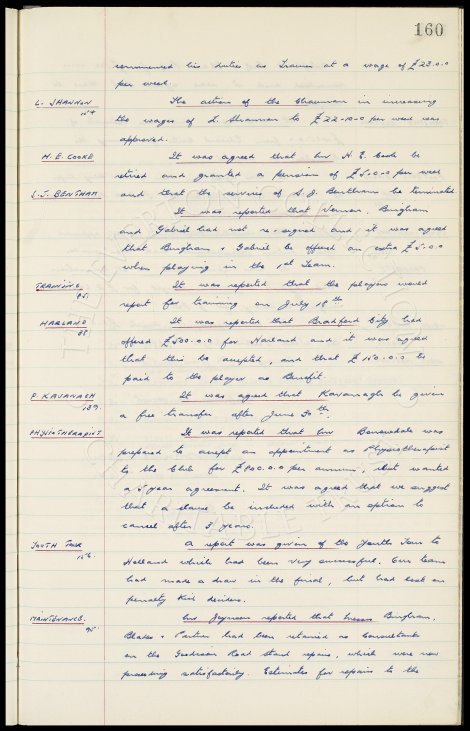 160
recommenced his duties as Trainer at a wage of £23.0.0
per week.
L. SHANNON The action of the Chairman in increasing
154 the wages of L. Shannon to £22-10-0 per week was
approved.
H. E. COOKE It was agreed that Mr H. E. Cooke be
retired and granted a pension of £5.0.0 per week
S. J. BENTHAM and that the services of S. J. Bentham be terminated
It was reported that Vernon, Bingham
and Gabriel had not re-signed and it was agreed
that Bingham & Gabriel be offered an extra £5.0.0
when playing in the 1st Team.
TRAINING It was reported that the players would
151 report for training on July 18th
HARLAND It was reported that Bradford City had
88 offered £500.0.0 for Harland and it was agreed
that this be accepted, and that £150.0.0 be
paid to the player as Benefit.
P. KAVANAGH It was agreed that Kavanagh be given
139 a free transfer after June 30th.
PHYSIOTHERAPIST It was reported that Mr Borrowdale was
prepared to accept an appointment as Physiotherapist
to the Club for £900.0.0 per annum, but wanted
a 5 year agreement. It was agreed that we suggest
that a clause be included with an option to
cancel after 3 years.
YOUTH TOUR A report was given of the Youth Tour to
156 Holland which had been very successful. Our team
had made a draw in the final, but had lost on
penalty kick deciders.
MAINTENANCE. Mr Joynson reported that Messrs Bingham,
95 Blades & Partners had been retained as Consultants
on the Goodison Road stand repairs, which were now
proceeding satisfactorily. Estimates for repairs to the